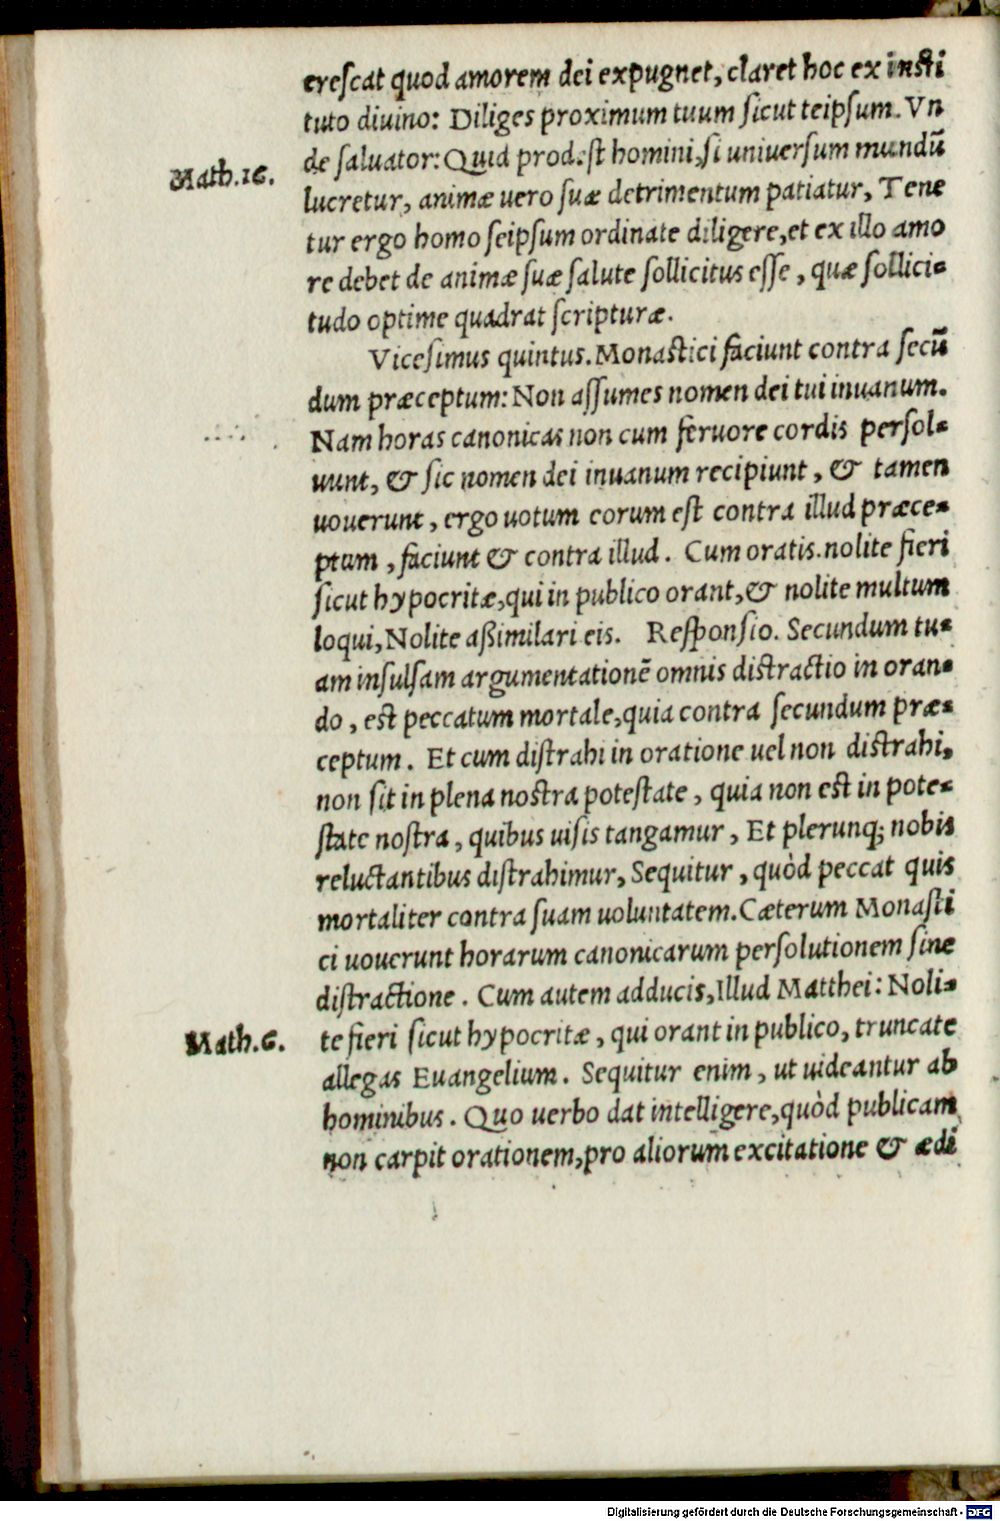 creſcat quod amorem dei expugnet, claret hoc ex inſti
tuto diuino: Diliges proximum tuum ſicut teipſum. Vn
de ſaluator: Quid prodeſt homini, ſi uniuerſum mundũ
Math.16.
lucretur, animæ uero ſuæ detrimentum patiatur, Tene
tur ergo homo ſeipſum ordinate diligere, et ex illo amo
re debet de animæ ſuæ ſalute ſollicitus eſſe, quæ ſollici-
tudo optime quadrat ſcripturæ.
Viceſimus quintus. Monaſtici faciunt contra ſecũ
dum præceptum: Non aſſumes nomen dei tui inuanum.
Nam horas canonicas non cum feruore cordis perſol-
uunt, & ſic nomen dei inuanum recipiunt, & tamen
uouerunt, ergo uotum eorum eſt contra illud præce-
ptum, faciunt & contra illud. Cum oratis. nolite fieri
ſicut hypocritæ, qui in publico orant, & nolite multum
loqui, Nolite aßimilari eis. Reſponſio. Secundum tu-
am inſulſam argumentationẽ omnis diſtractio in oran-
do, eſt peccatum mortale, quia contra ſecundum præ-
ceptum. Et cum diſtrahi in oratione uel non diſtrahi,
non ſit in plena noſtra poteſtate, quia non eſt in pote-
ſtate noſtra, quibus uiſis tangamur, Et plerunq; nobis
reluctantibus diſtrahimur, Sequitur, quòd peccat quis
mortaliter contra ſuam uoluntatem. Cæterum Monaſti
ci uouerunt horarum canonicarum perſolutionem ſine
diſtractione. Cum autem adducis, Illud Matthei: Noli-
Math.6.
te fieri ſicut hypocritæ, qui orant in publico, truncate
allegas Euangelium. Sequitur enim, ut uideantur ab
hominibus. Quo uerbo dat intelligere, quòd publicam
non carpit orationem, pro aliorum excitatione & ædi
Digitalisierung gefördert durch die Deutsche Forschungsgemeinschaft - DFG